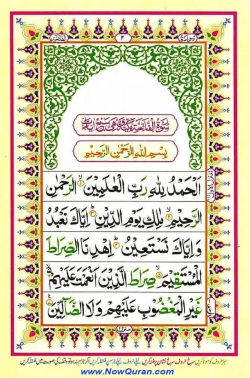 ٢
بِسْمِ اللهِ الرَّحْمٰنِ الرَّحِيْمِ
اَلْحَمْدُ لِلّٰهِ رَبِّ الْعٰلَمِيْنَ الرَّحْمٰنِ
الرَّحِيْمِ مٰلِكِ يَوْمِ الدِّيْنِ اِيَّاكَ نَعْبُدُ
وَاِيَّاكَ نَسْتَعِيْنُ اِهْدِنَا الصِّرَاطَ
الْمُسْتَقِيْمَ صِرَاطَ الَّذِيْنَ اَنْعَمْتَ عَلَيْهِمْ
غَيْرِ الْمَغْضُوْبِ عَلَيْهِمْ وَلَا الضَّآلِّيْنَ
www.NowQuran.com